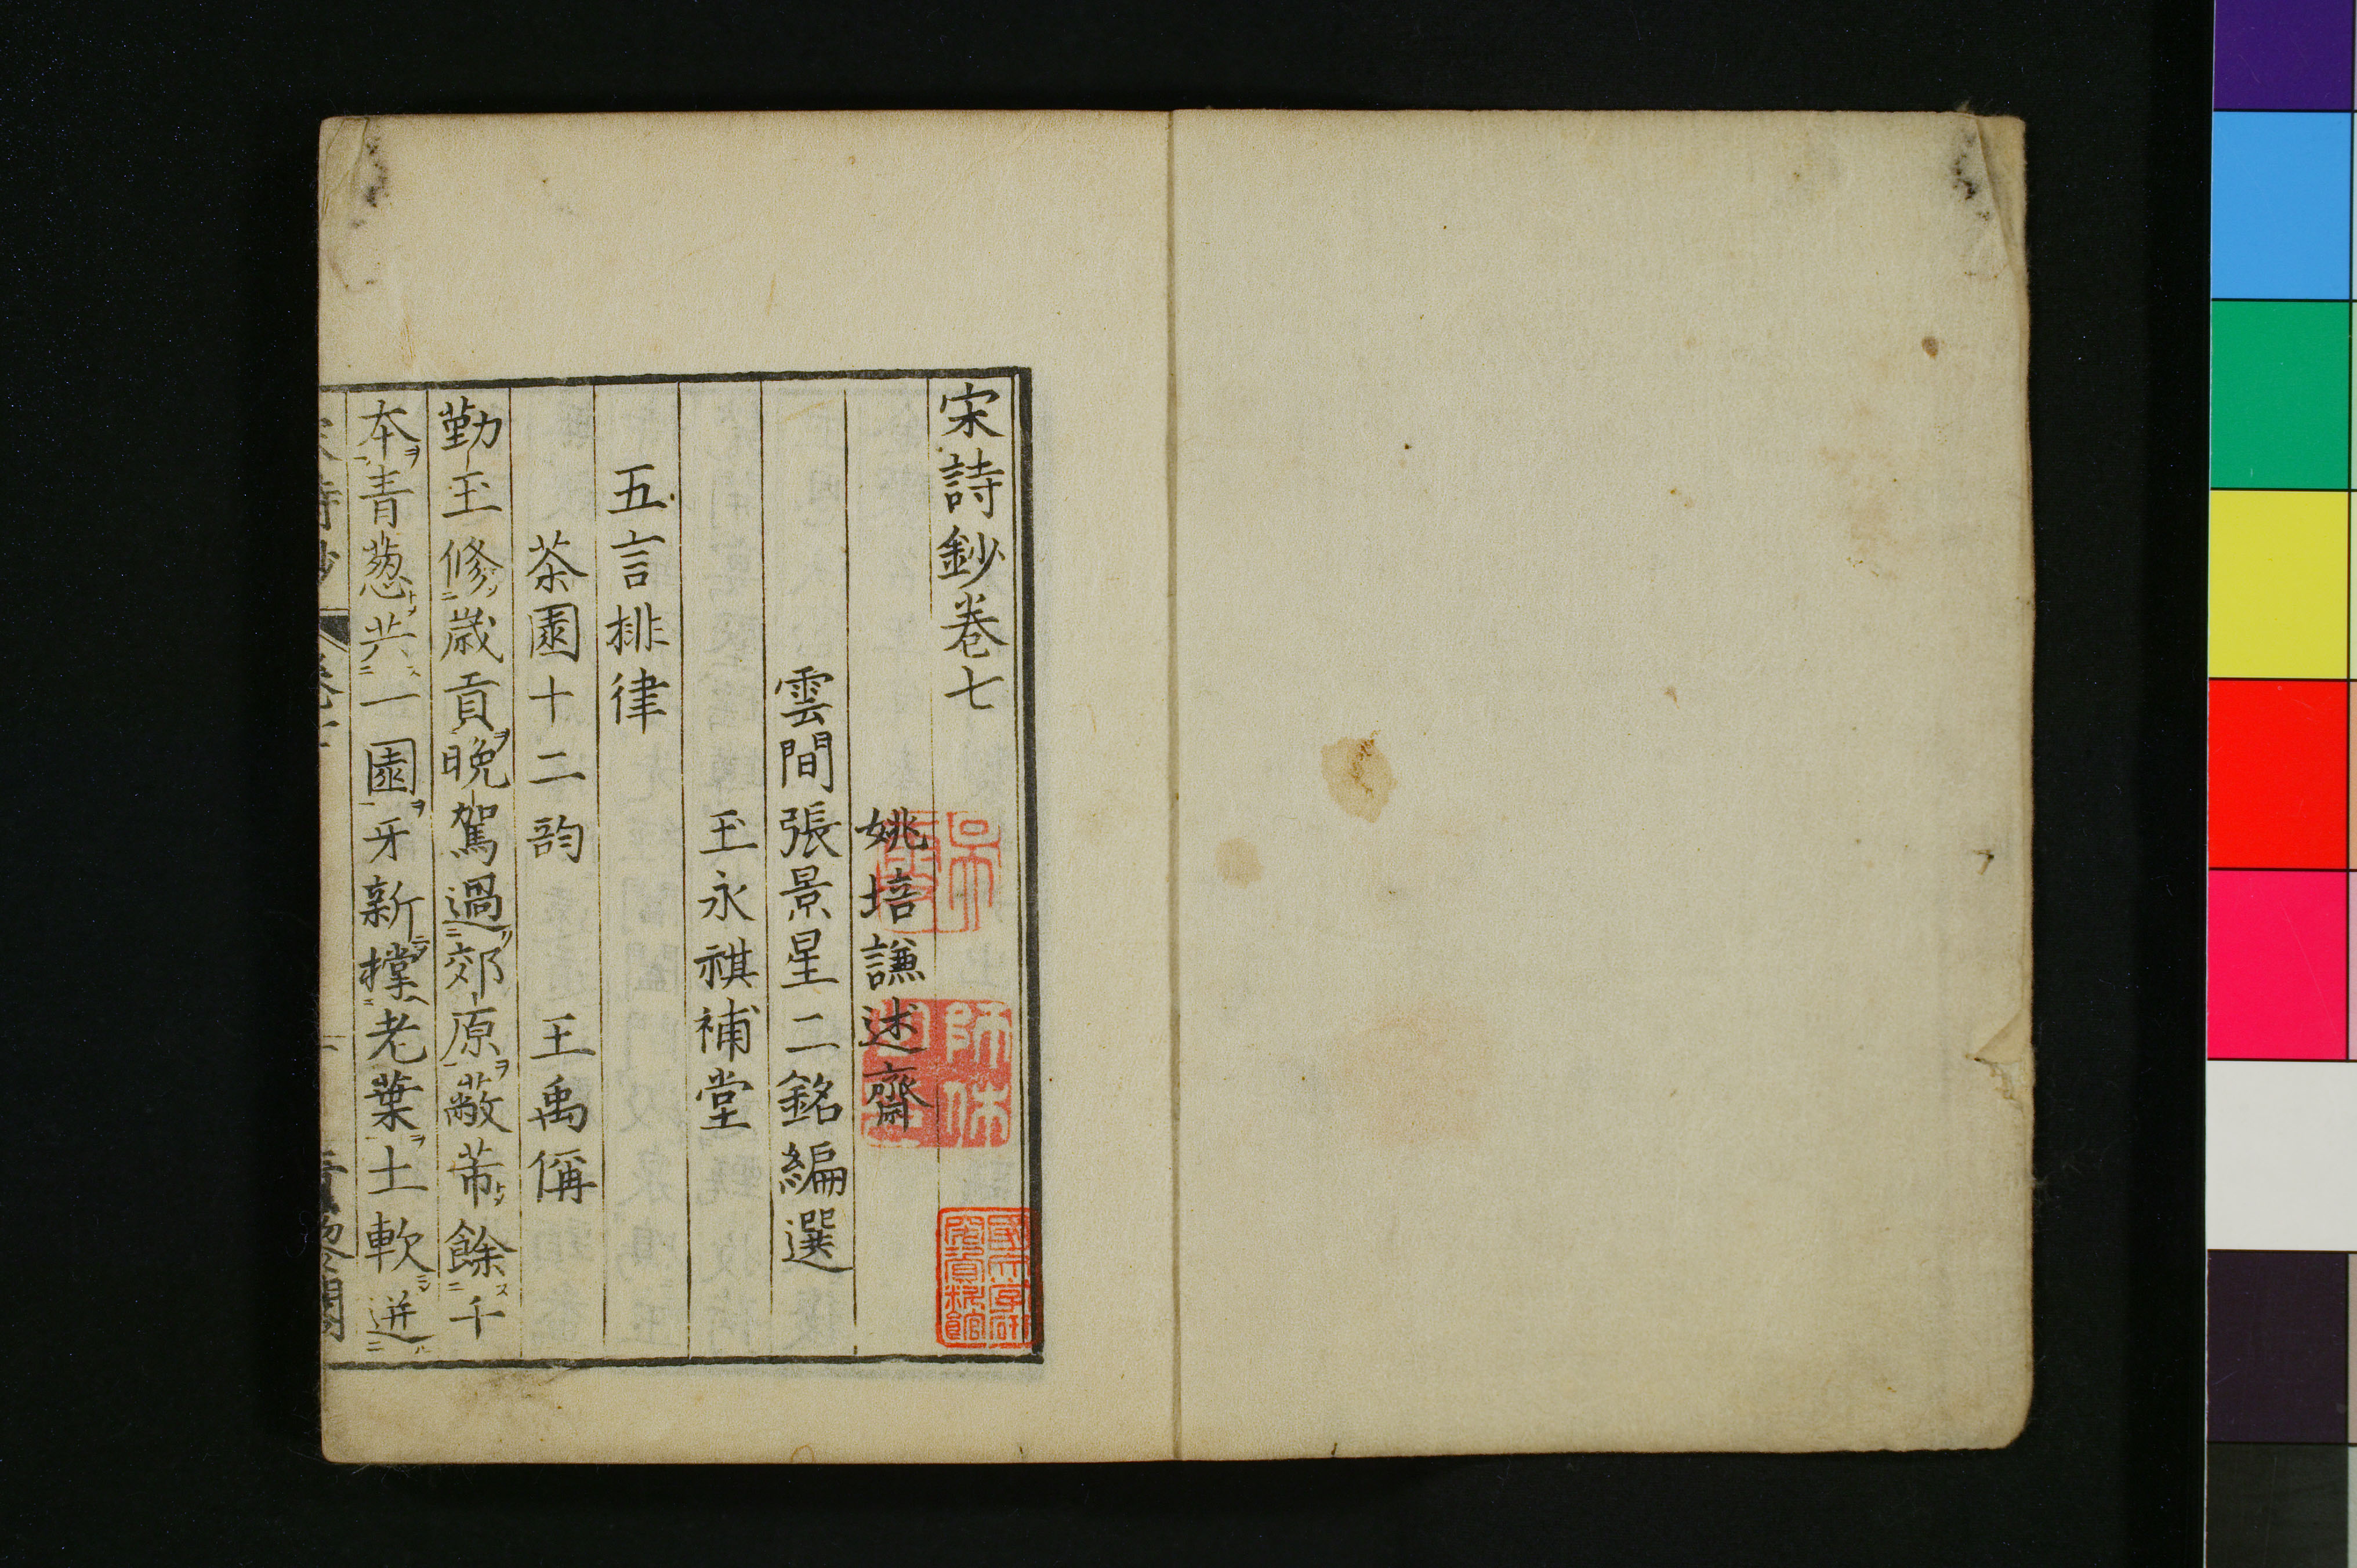 宋詩鈔卷七
姚培謙述齋
雲間張景星二銘編選
王永祺補堂
五言排律
茶園十二韵　王禹偁
勤王修歳貢晩駕過郊原蔽芾餘千
本青葱共一園牙新撑老葉土軟迸
國文學研
究資料館